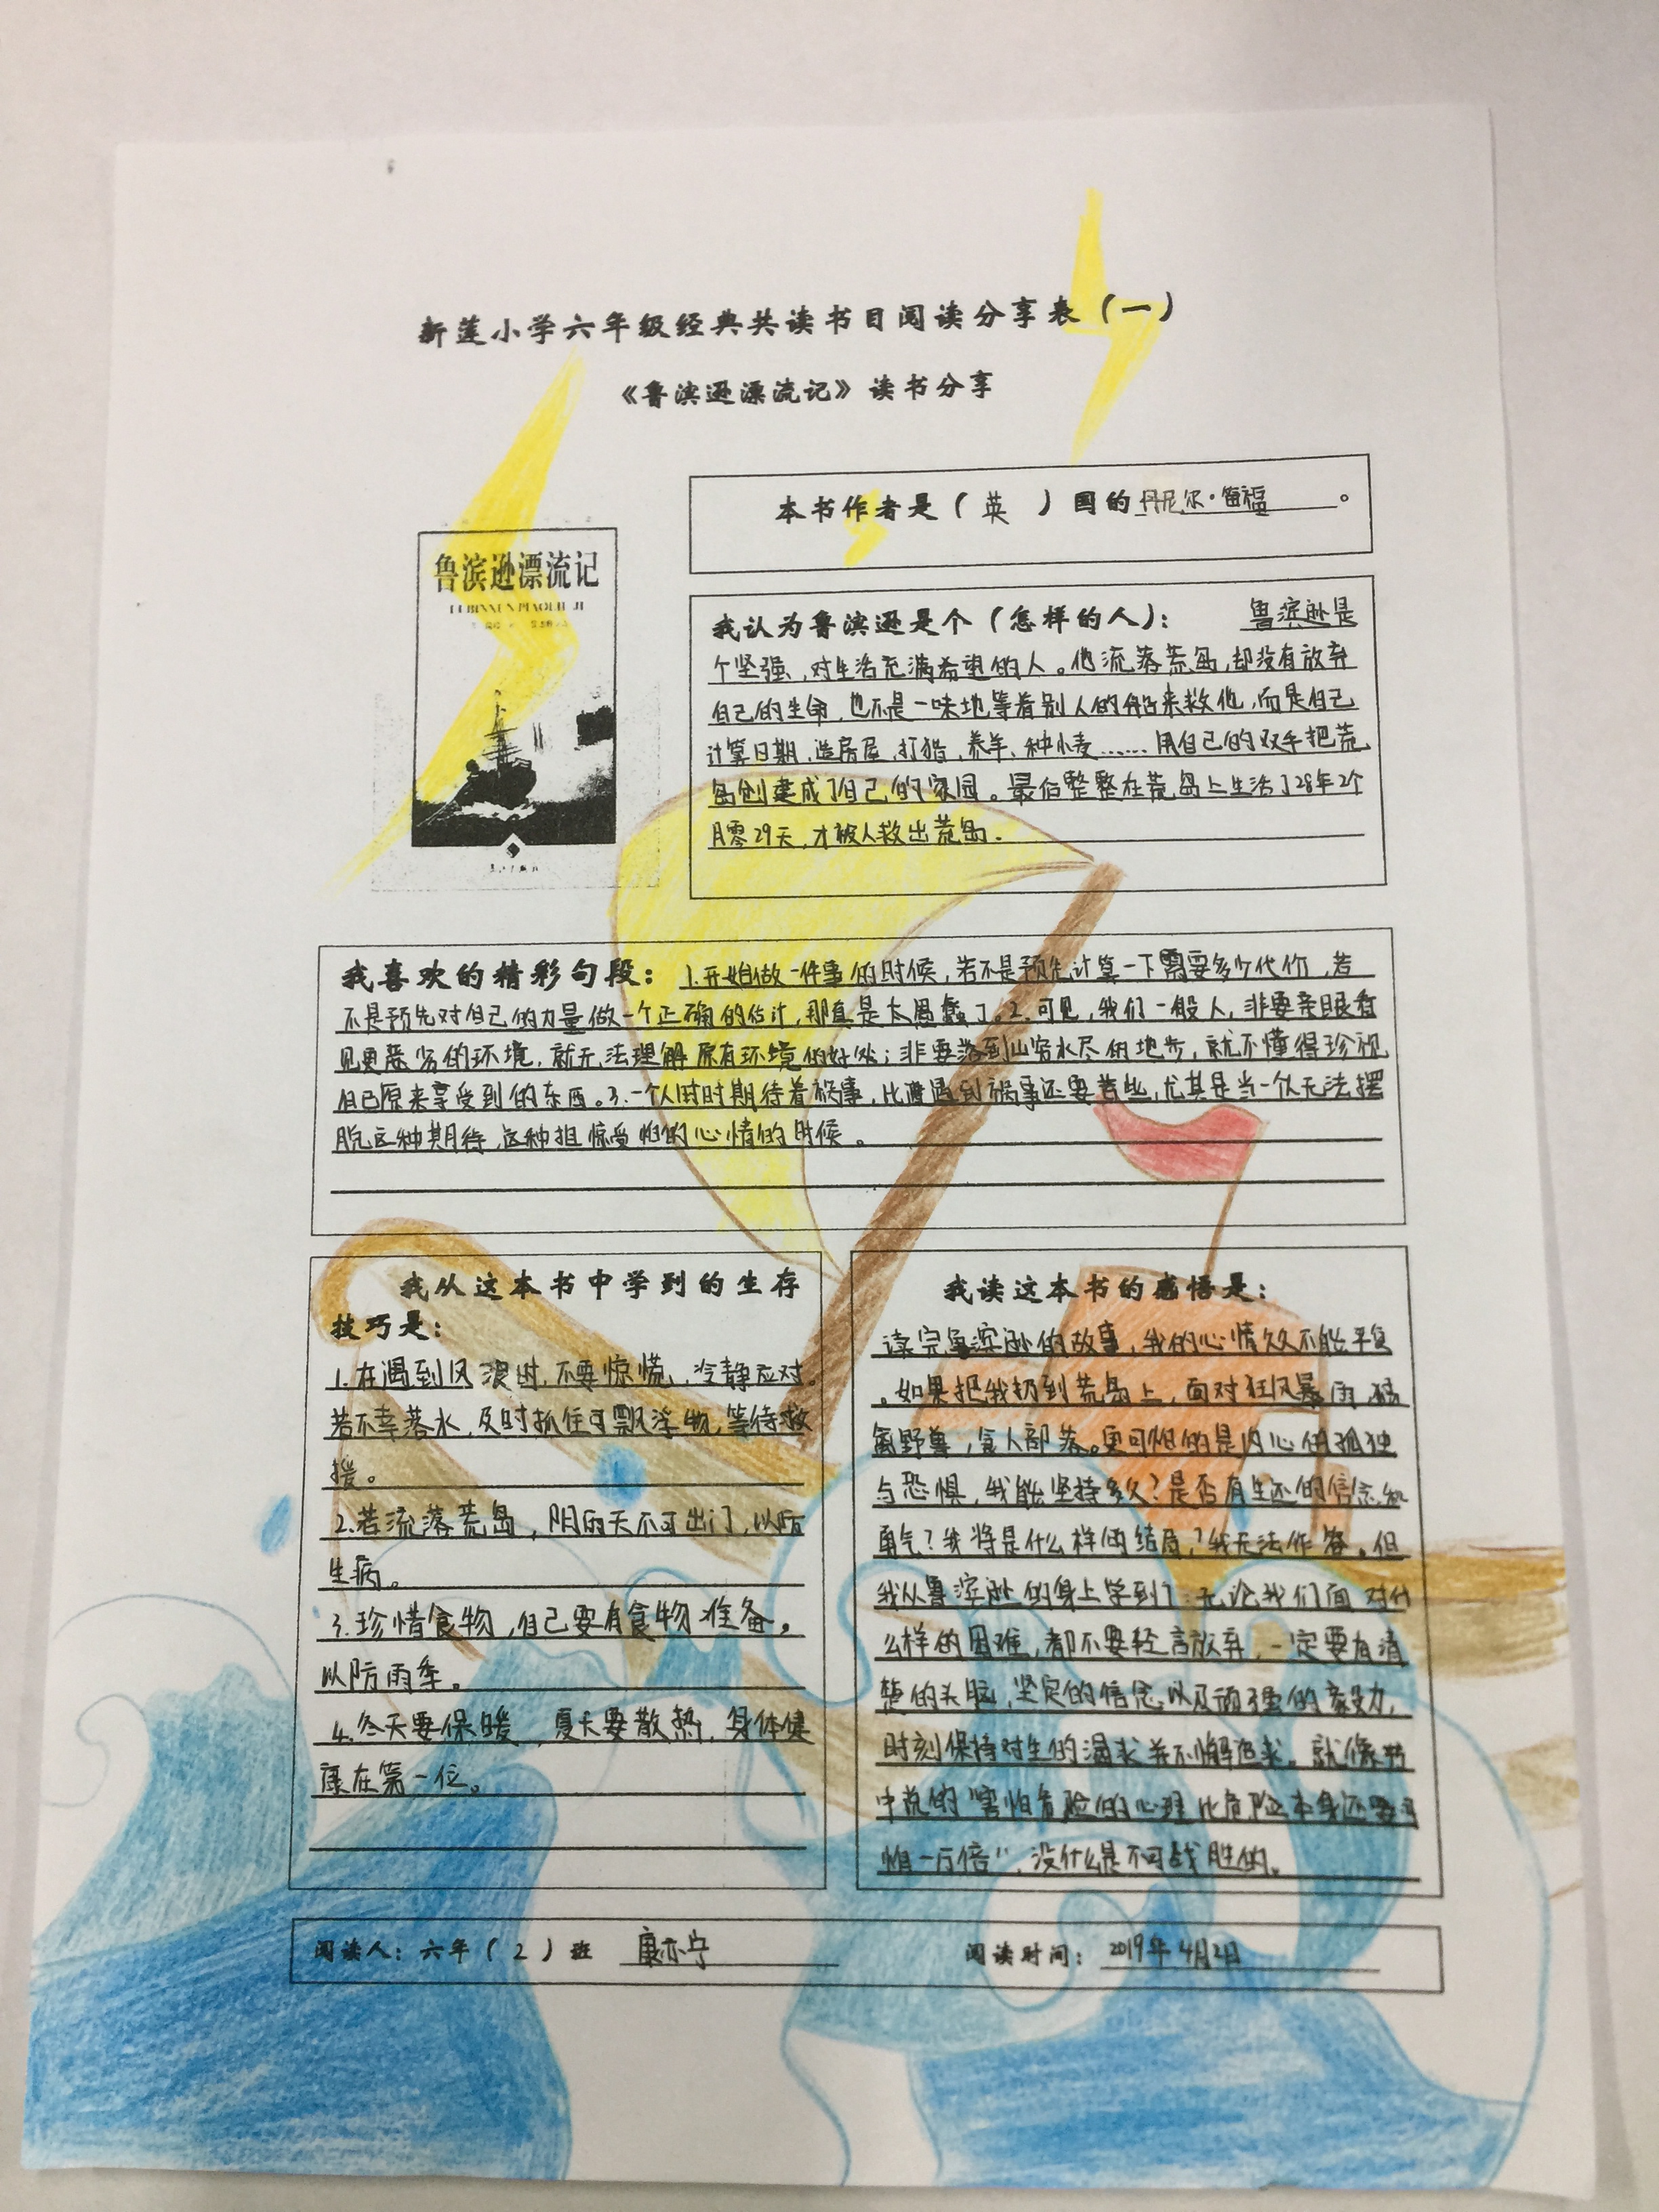 新莲小学六年级经典共读书目阅读分享表（一）
《鲁滨逊漂流记》读书分享
本书作者是（ 英 ）国的丹尼尔·笛福。
鲁滨逊漂流记
我认为鲁滨逊是个（怎样的人）： 鲁滨逊是
个坚强、对生活充满希望的人。他流落荒岛，却没有放弃
自己的生命，也不是一味地等着别人的船来救他，而是自己
计算日期、造房屋、打猎、养羊、种小麦……用自己的双手把荒
岛创建成了自己的家园。最后整整在荒岛上生活了28年2个
月零29天，才被人救出荒岛.
我喜欢的精彩句段： 1.开始做一件事的时候，若不是预先计算一下需要多少代价，若
不是预先对自己的力量做一个正确的估计，那真是太愚蠢了。2.可见，我们一般人，非要亲眼看
见更恶劣的环境，就无法理解原有环境的好处；非要落到山穷水尽的地步，就不懂得珍视
自己原来享受到的东西。3.一个人时时期待着祸事，比遭遇到祸事还要苦些，尤其是当一个人无法摆
脱这种期待，这种担惊受怕的心情的时候。
我从这本书中学到的生存
技巧是：
1.在遇到风浪时，不要惊慌、冷静应对。
若不幸落水，及时抓住可飘浮物，等待救
援。
2.若流落荒岛，阴雨天不可出门，以防
生病。
3.珍惜食物，自己要有食物准备，
以防雨季。
4.冬天要保暖，夏天要散热，身体健
康在第一位。
我读这本书的感悟是：
读完鲁滨逊的故事，我的心情久久不能平复
。如果把我扔到荒岛上，面对狂风暴雨，猛
禽野兽，食人部落。更可怕的是内心的孤独
与恐惧，我能坚持多久？是否有生还的信念和
勇气？我将是什么样的结局？我无法作答。但
我从鲁滨逊的身上学到了：无论我们面对什
么样的困难，都不要轻言放弃，一定要有清
楚的头脑，坚定的信念以及顽强的毅力，
时刻保持对生的渴求并不懈追求。就像书
中说的“害怕危险的心理比危险本身还要可
怕一万倍”，没什么是不可战胜的。
阅读人：六年（ 2 ）班 康亦宁 阅读时间： 2019年4月2日